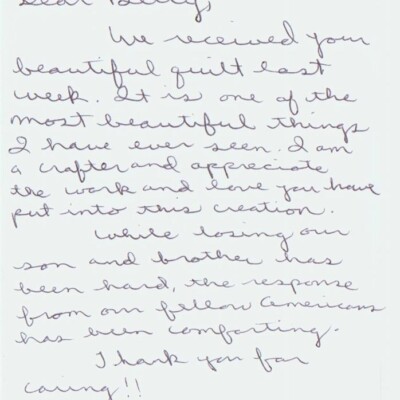 Dear Betty,
We received your
beautiful quilt last
week. It is one of the
most beautiful things
I have ever seen. I am
a crafter and appreciate
the work and love you have
put into this creation.
While losing our
son and brother has
been hard, the response
from our fellow Americans
has been comforting.
Thank you for
caring!!